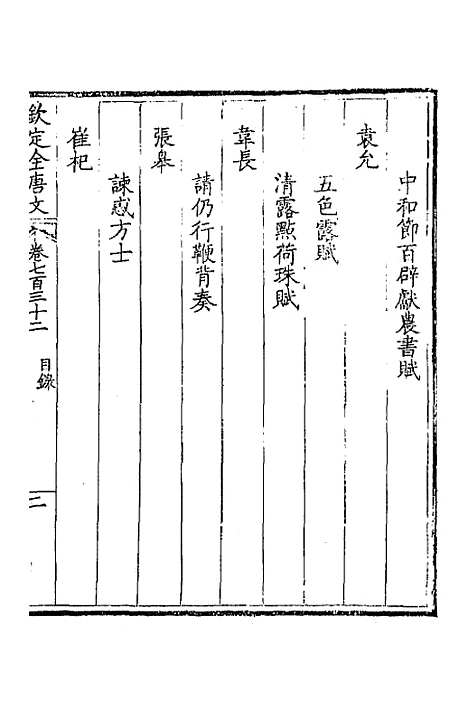 中和節百辟獻農書賦
袁允
五色露賦
清露點荷珠賦
韋長
請仍行鞭背奏
張皋
諫惑方士
崔杞
欽定全唐文 卷七百三十二 目錄 二